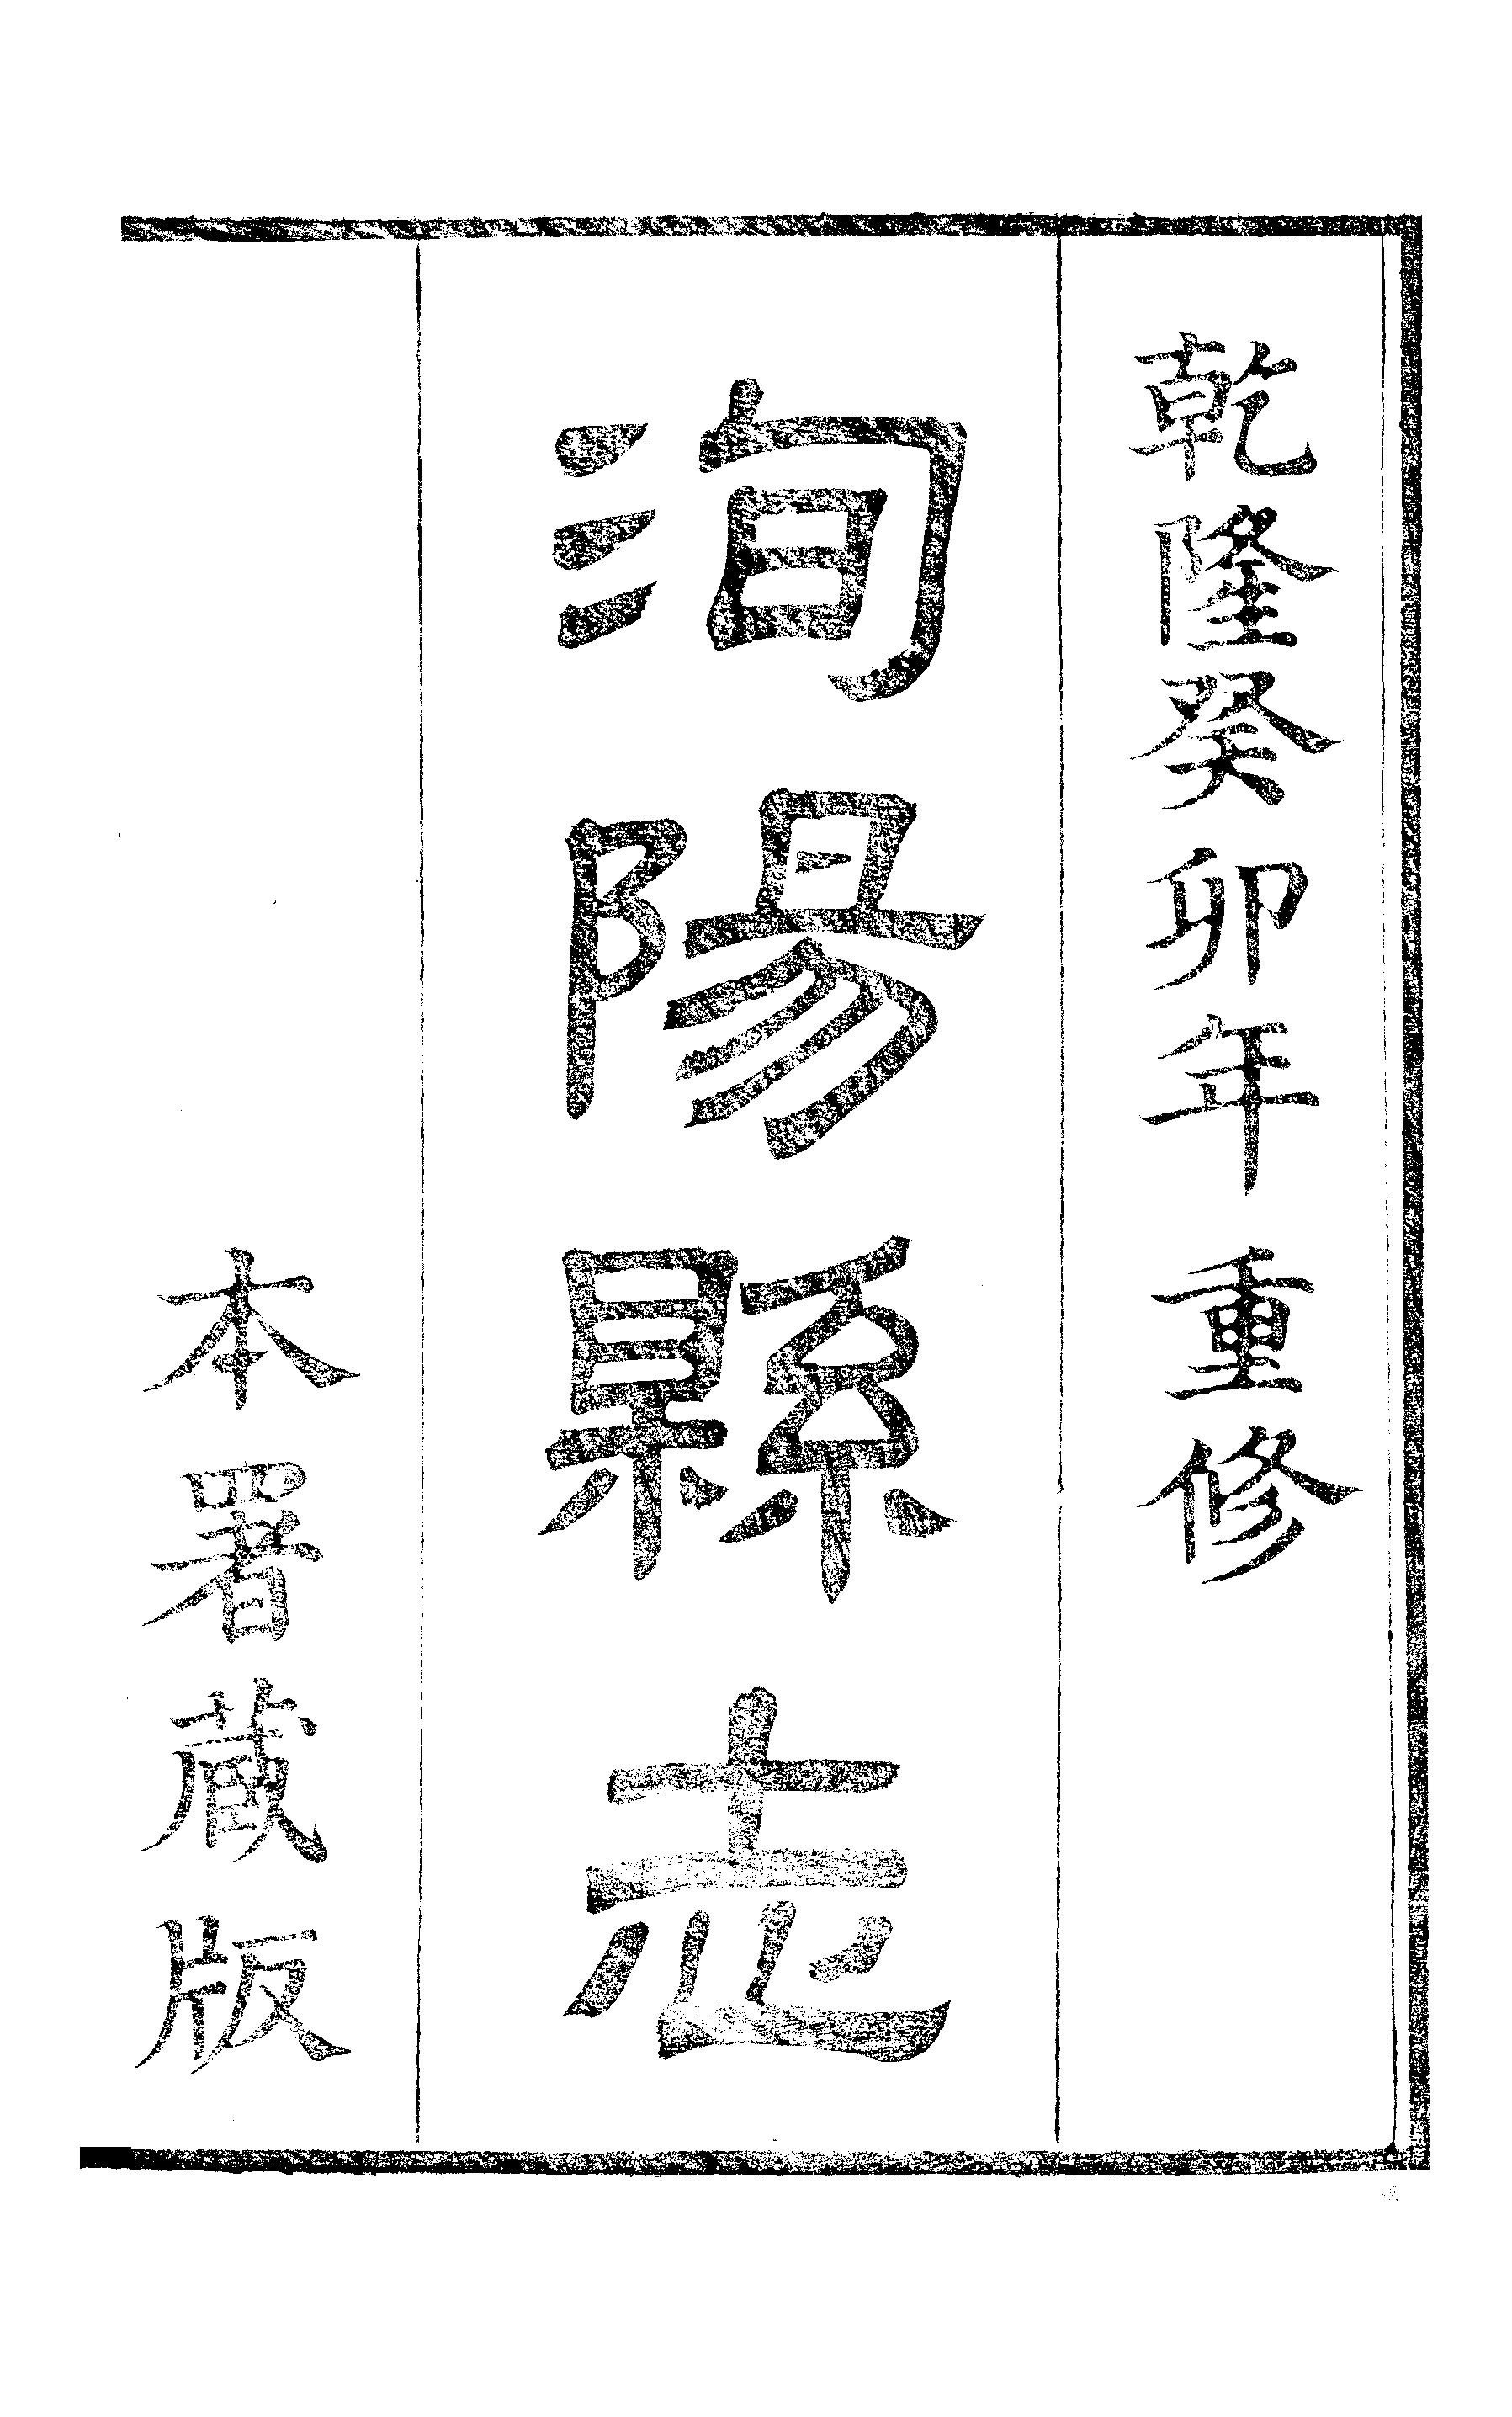 乾隆癸卯年重修
洵陽縣志
本署藏版